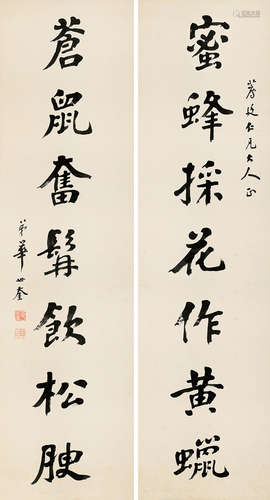 蜜蜂採花作黃蠟
仁兄大人正
蒼鼠奮髯飲松腴
弟華世奎